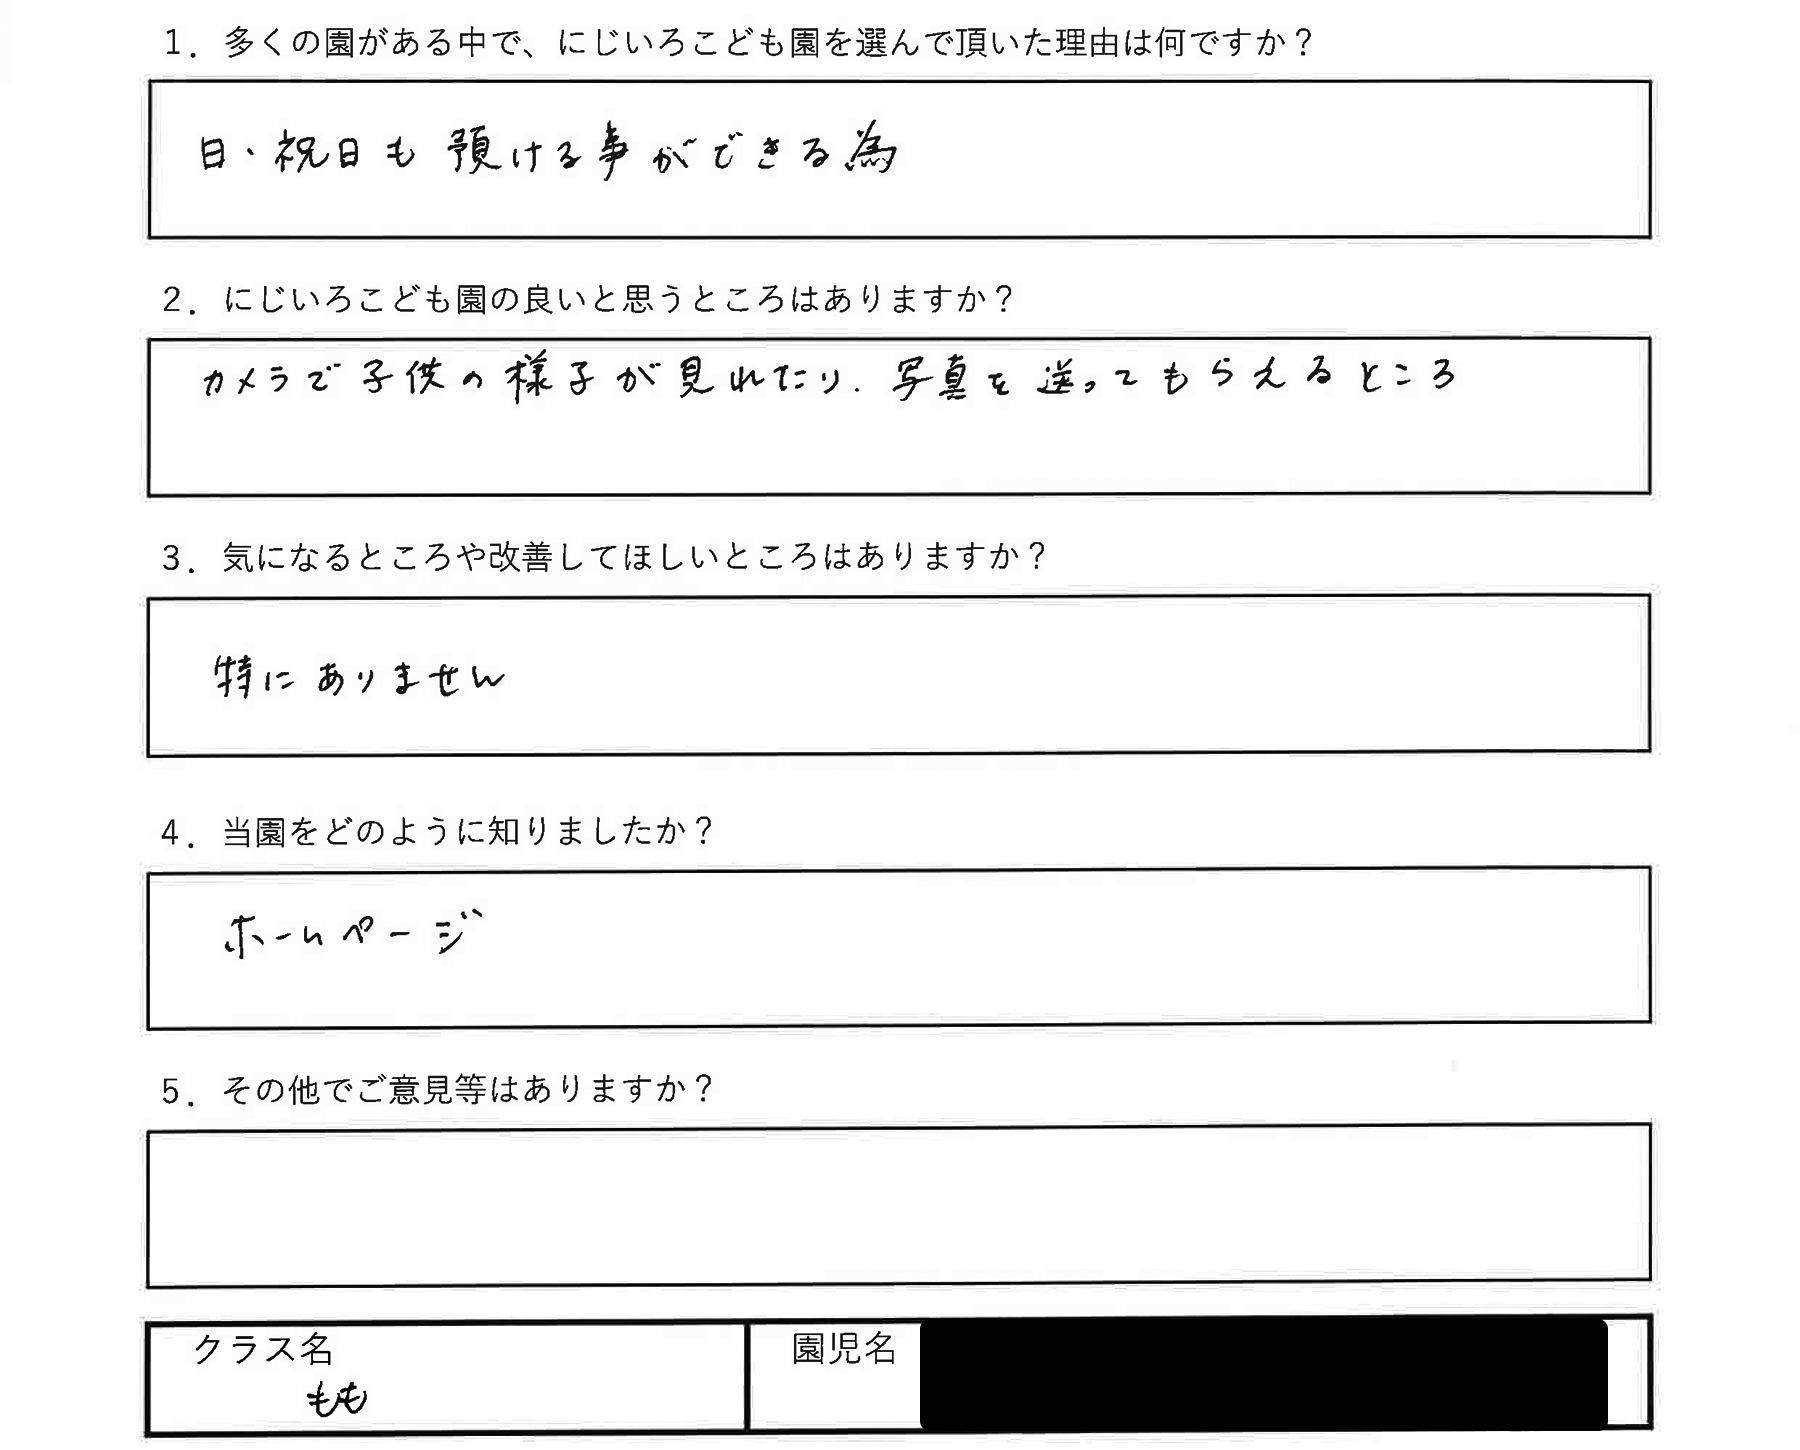 1．多くの園がある中で、にじいろこども園を選んで頂いた理由は何ですか？
日・祝日も預ける事ができる為
2．にじいろこども園の良いと思うところはありますか？
カメラで子供の様子が見れたり、写真を送ってもらえるところ
3．気になるところや改善してほしいところはありますか？
特にありません
4．当園をどのように知りましたか？
ホームページ
5．その他でご意見等はありますか？
クラス名 園児名
もも